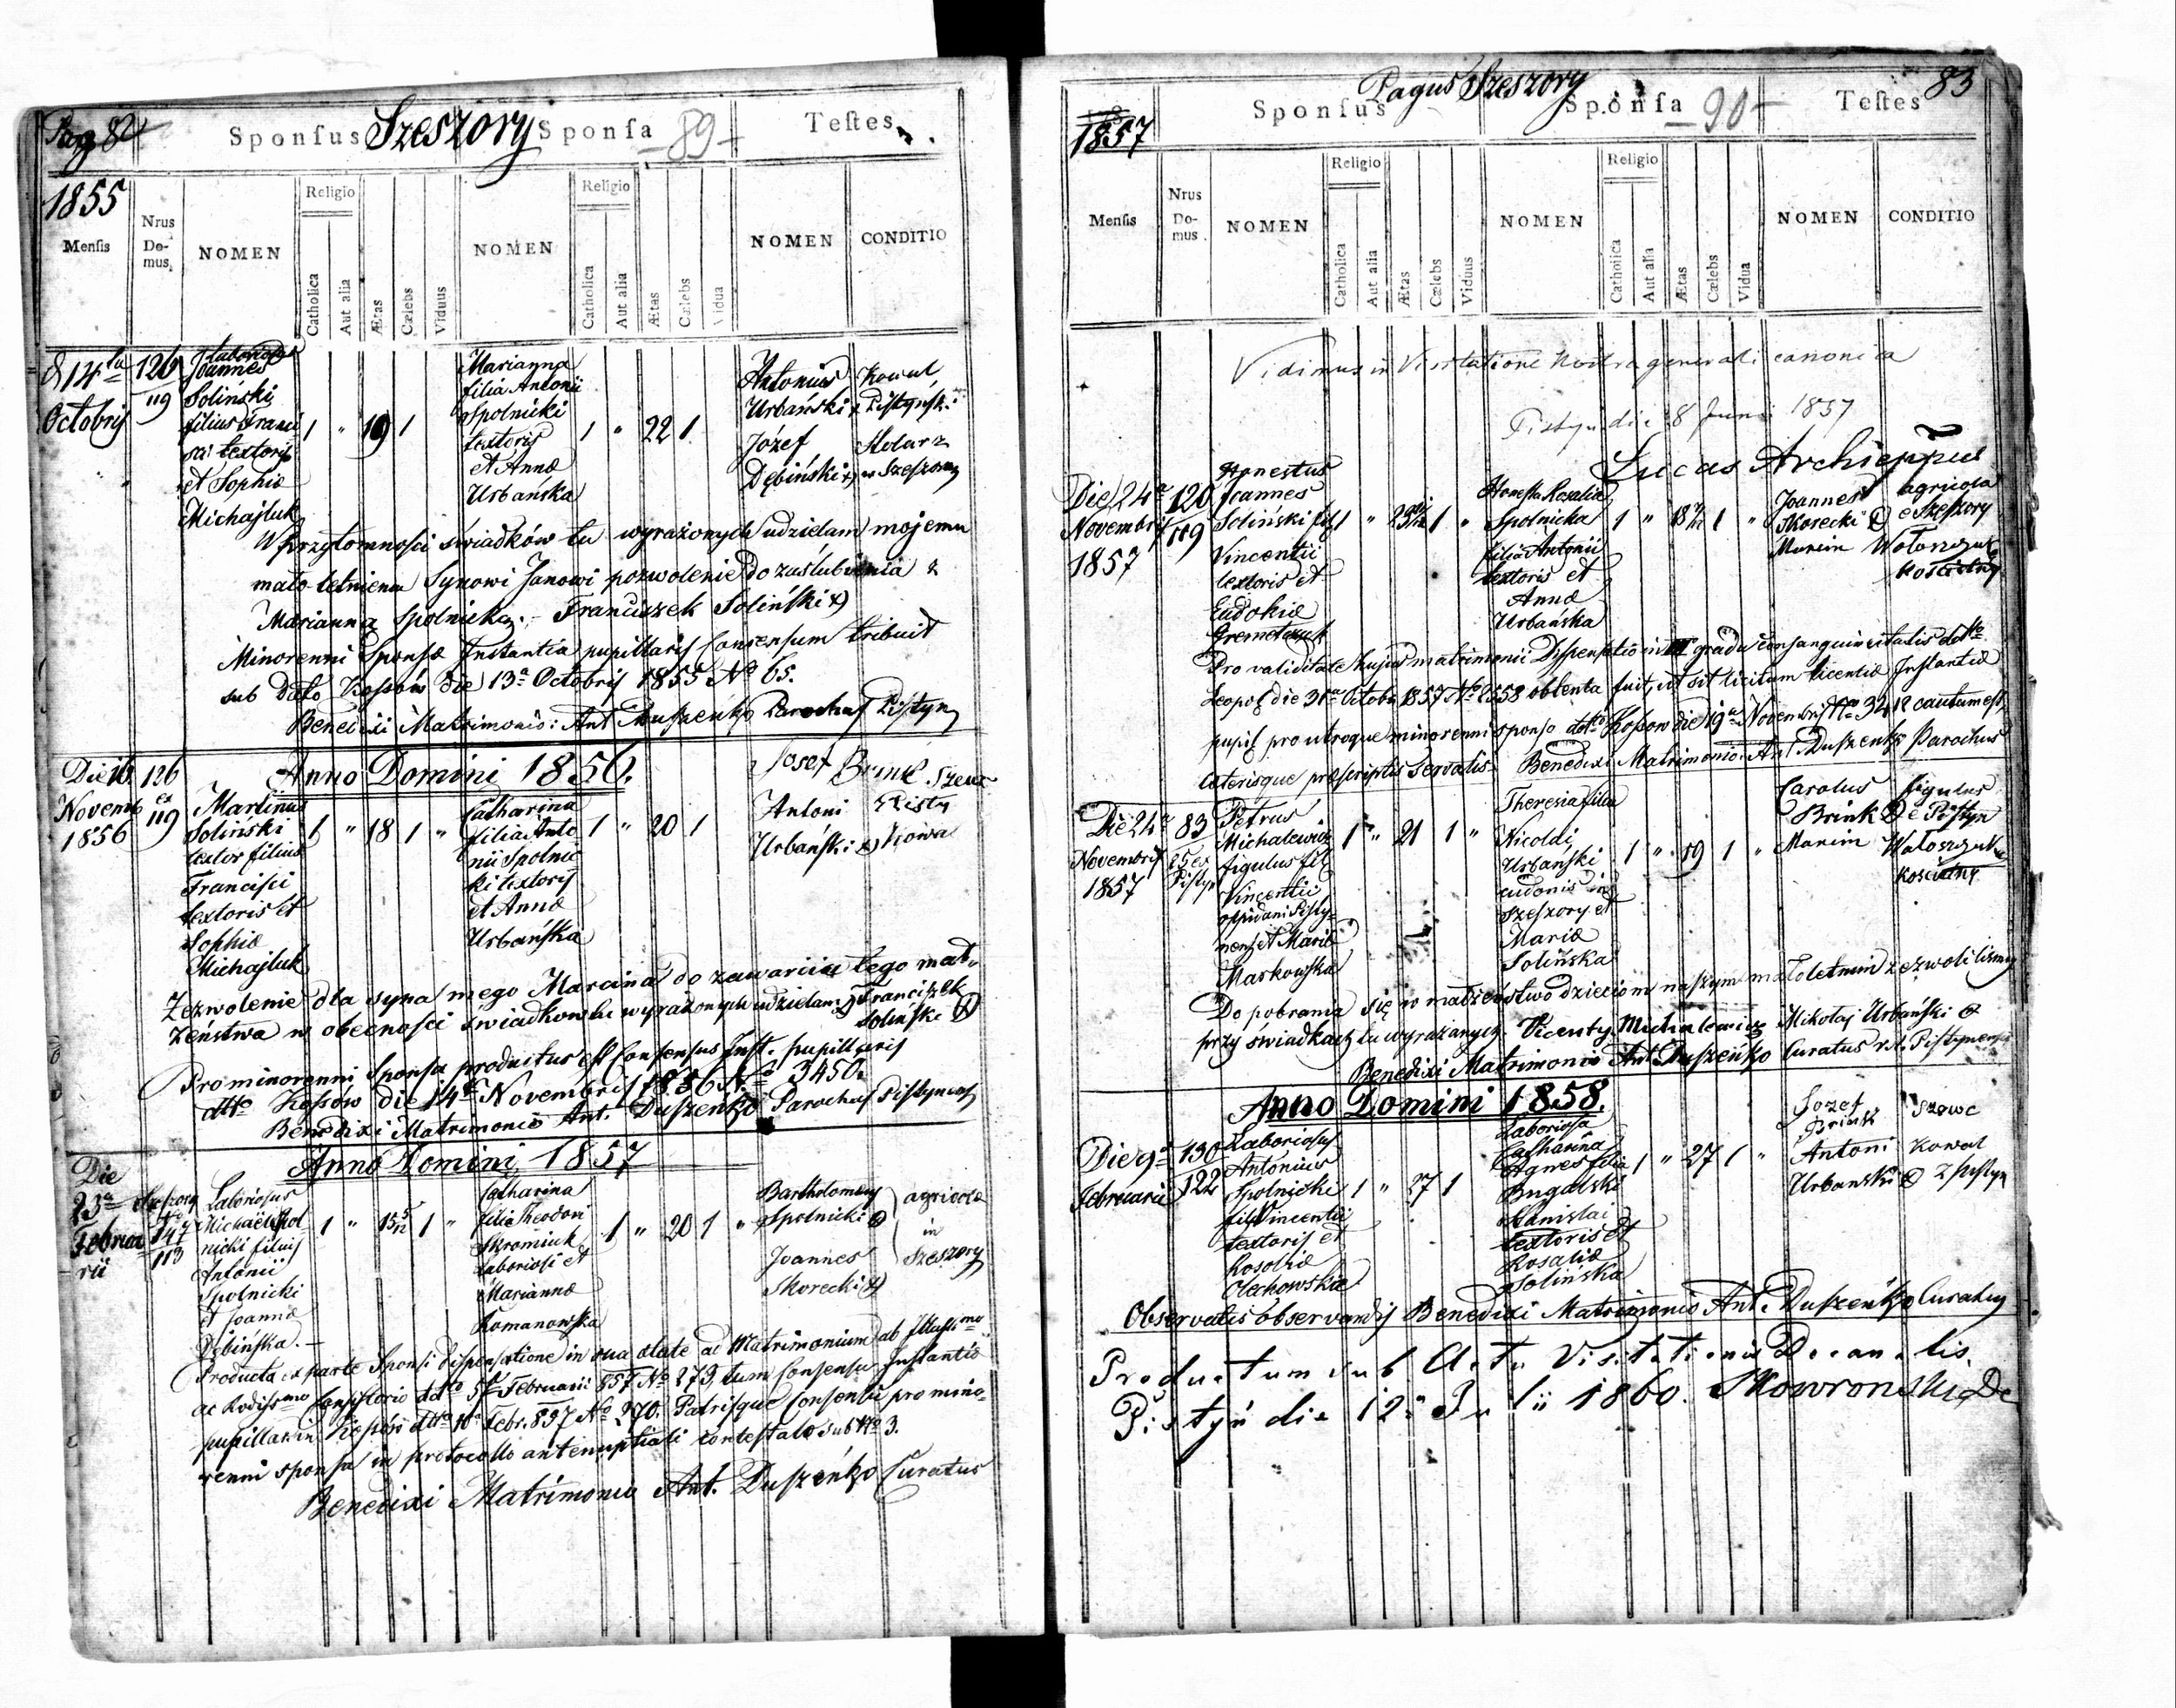 Pag 82
Sponsus Szeszory Sponsa - 89 - Testes
1855
Mensis
Nrus Domus
NOMEN
Religio
Catholica
Aut alia
Ætas
Cœlebs
Viduus
NOMEN
Religio
Catholica
Aut alia
Ætas
Cœlebs
Vidua
NOMEN
CONDITIO
d 14ta
Octobris
126
119
Laboriosus
Joannes
Soliński
filius Franci
sci textoris
et Sophiæ
Michajluk
1 " 19 1
Marianna
filia Antonii
Spolnicki
textoris
et Annæ
Urbańska
1 " 22 1
Antonius
Urbański x
Józef
Dębiński x)
Kowal
Pistyński
Stolarz
w Szeszory
W przytomności świadków tu wyrażonych udzielam mojemu
mało letniemu Synowi Janowi pozwolenie do zaślubienia z
Marianną Spolnicką. Franciszek Soliński x)
Minorenni Sponsæ Instantia pupillaris Consensum tribuit
sub Dato Kossów die 13a Octobris 1855 No 65.
Benedixi Matrimonio: Ant. Duszeńko Parochus Pistyn
Anno Domini 1856.
Die 18
Novemb
1856
126
ex
119
Martinus
Soliński
textor filius
Francisci
textoris et
Sophiæ
Michajluk
1 " 18 1 "
Catharina
filia Anto
nii Spolnic
ki textoris
et Annæ
Urbańska
1 " 20 1
Josef Brink Szewc
Antoni
Urbański x)
z Pisty
Kowal
Zezwolenie dla syna mego Marcina do zawarcia tego mał
żeństwa w obecności świadków tu wyrażonych udzielam Franciszek
Soliński x)
Pro minorenni Sponsa productus est Consensus Inst. pupillaris
ddto Kossow die 14a Novembris 1856 No 3450.
Benedixi Matrimonio Ant. Duszeńko Parochus Pistynens
Anno Domini 1857
Die
23a
Februa
rii
Szeszory
147
113
Laboriosus
Michaël Spol
nicki filius
Antonii
Spolnicki
et Joannæ
Dębińska.
1 " 15 5/12 1 "
Catharina
filia Theodori
Skromiuk
Laboriosi et
Mariannæ
Romanowska
1 " 20 1 "
Bartholomeus
Spolnicki x
Joannes
Skorecki x)
agricolæ
in
Szeszory
Producta ex parte Sponsi dispensatione in sua ætate ad Matrimonium ab Illustrmo
ac Rvdissmo Consistorio ddto 5t Februarii 857 No 273, tum Consensu Instantiæ
pupillaris in Kossów ddto 10a Febr. 857 No 270. Patrisque Consensu pro mino-
renni sponsa in protocollo antenuptiali contestato sub No 3.
Benedixi Matrimonio Ant. Duszeńko Curatus
1857
Pagus Szeszory
Sponsus Sponsa - 90 - Testes
83
Mensis
Nrus Domus
NOMEN
Religio
Catholica
Aut alia
Ætas
Cœlebs
Viduus
NOMEN
Religio
Catholica
Aut alia
Ætas
Cœlebs
Vidua
NOMEN
CONDITIO
Vidimus in Visitatione Nostra generali canonica
Pistyn die 8 Junii 1857
Lucas Archieppus
Die 24a
Novembris
1857
120
119
Honestus
Joannes
Soliński fil
Vincentii
textoris et
Eudokiæ
1 "
Honesta Rosalia
Spolnicka
filia Antonii
textoris et
Annæ
Urbańska
1 " 1 "
Joannes
Skorecki x
Marcin
agricola
e Szeszory
Wołoszczuk
kościelny
Pro validitate hujus matrimonii Dispensatio in III gradu consanguinitatis ddto
Leopol die 31a Octob. 1857 No 2558 obtenta fuit, ut sit licitum licentiæ Instantiæ
pupil pro utroque minorenni sponso ddto Kossow die 19a Novembris No 3412 cautum est,
cæterisque præscriptis servatis. Benedixi Matrimonio: Ant. Duszeńko Parochus
Die 24a
Novembris
1857
83
25 ex
Pistyn
Petrus
Michalewicz
figulus fil
Vincentii
oppidani Pisty-
nens et Mariæ
Markowska
1 " 21 1 "
Theresia filia
Nicolai
Urbański
cudonis in
Szeszory et
Mariæ
Solińska
1 " 19 1 "
Carolus
Brink x
Marcin
figulus
e Pistyn
Wałoszczuk
kościelny
Do pobrania się w małżeństwo dzieciom naszym małoletnim zezwoliliśmy
przy świadkach tu wyrażanych. Vicenty Michalewicz Mikołaj Urbański x
Benedixi Matrimonio Ant. Duszeńko Curatus r. l. Pistynensis
Anno Domini 1858.
Die 9a
Februarii
130
122
Laboriosus
Antonius
Spolnicki
fil Vincentii
textoris et
Rosaliæ
Olechowska
1 " 27 1
Laboriosa
Catharina
Agnes filia
Bugalski
Stanislai
textoris et
Rosaliæ
Solińska
1 " 27 1 "
Jozef
Brink
Antoni
Urbanski x
Szewc
Kowal
z Pistyn
Observatis observandis Benedixi Matrimonio Ant. Duszeńko Curatus
Productum sub Actu Visitationis Decanalis.
Pistyń die 12a Julii 1860. Skowronski Dec